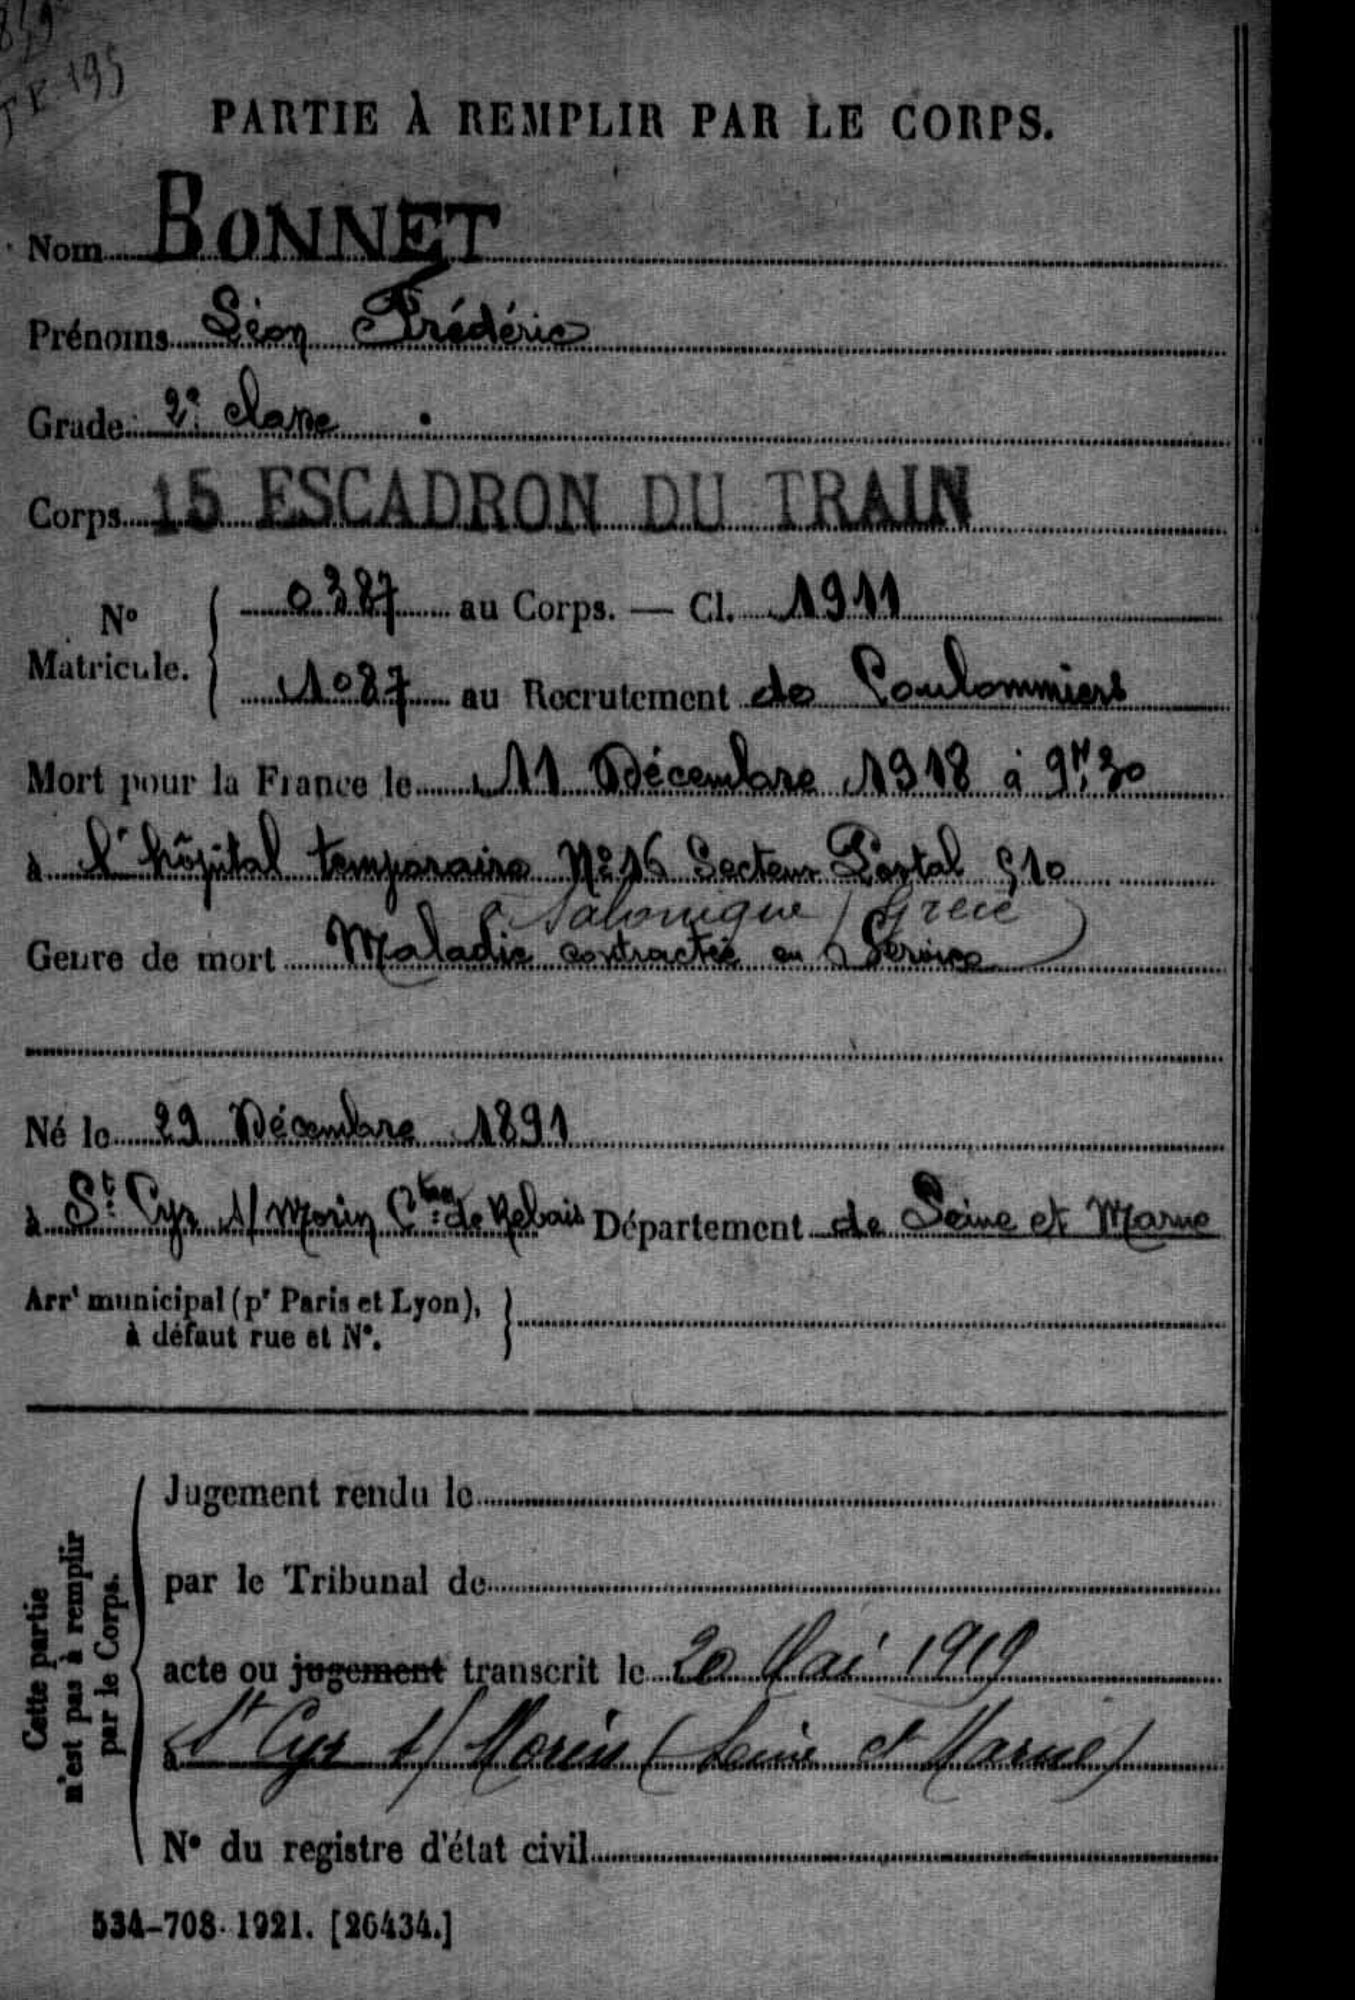 PARTIE À REMPLIR PAR LE CORPS.
Nom BONNET
Prénoms Léon Frédéric
Grade 2e classe
Corps 15 ESCADRON DU TRAIN
No Matricule. 0387 au Corps. — Cl. 1911
1087 au Recrutement de Coulommiers
Mort pour la France le 11 Décembre 1918 à 9H30
à l'hôpital temporaire No 16 Secteur Postal 510
Salonique / Grèce
Genre de mort Maladie contractée en Service
Né le 29 Décembre 1891
à St Cyr s/ Morin Cton de Rebais Département de Seine et Marne
Arrt municipal (pr Paris et Lyon),
à défaut rue et No.
Cette partie
n'est pas à remplir
par le Corps.
Jugement rendu le
par le Tribunal de
acte ou jugement transcrit le 20 Mai 1919
à St Cyr s/ Morin (Seine et Marne)
No du registre d'état civil
534-708. 1921. [26434.]